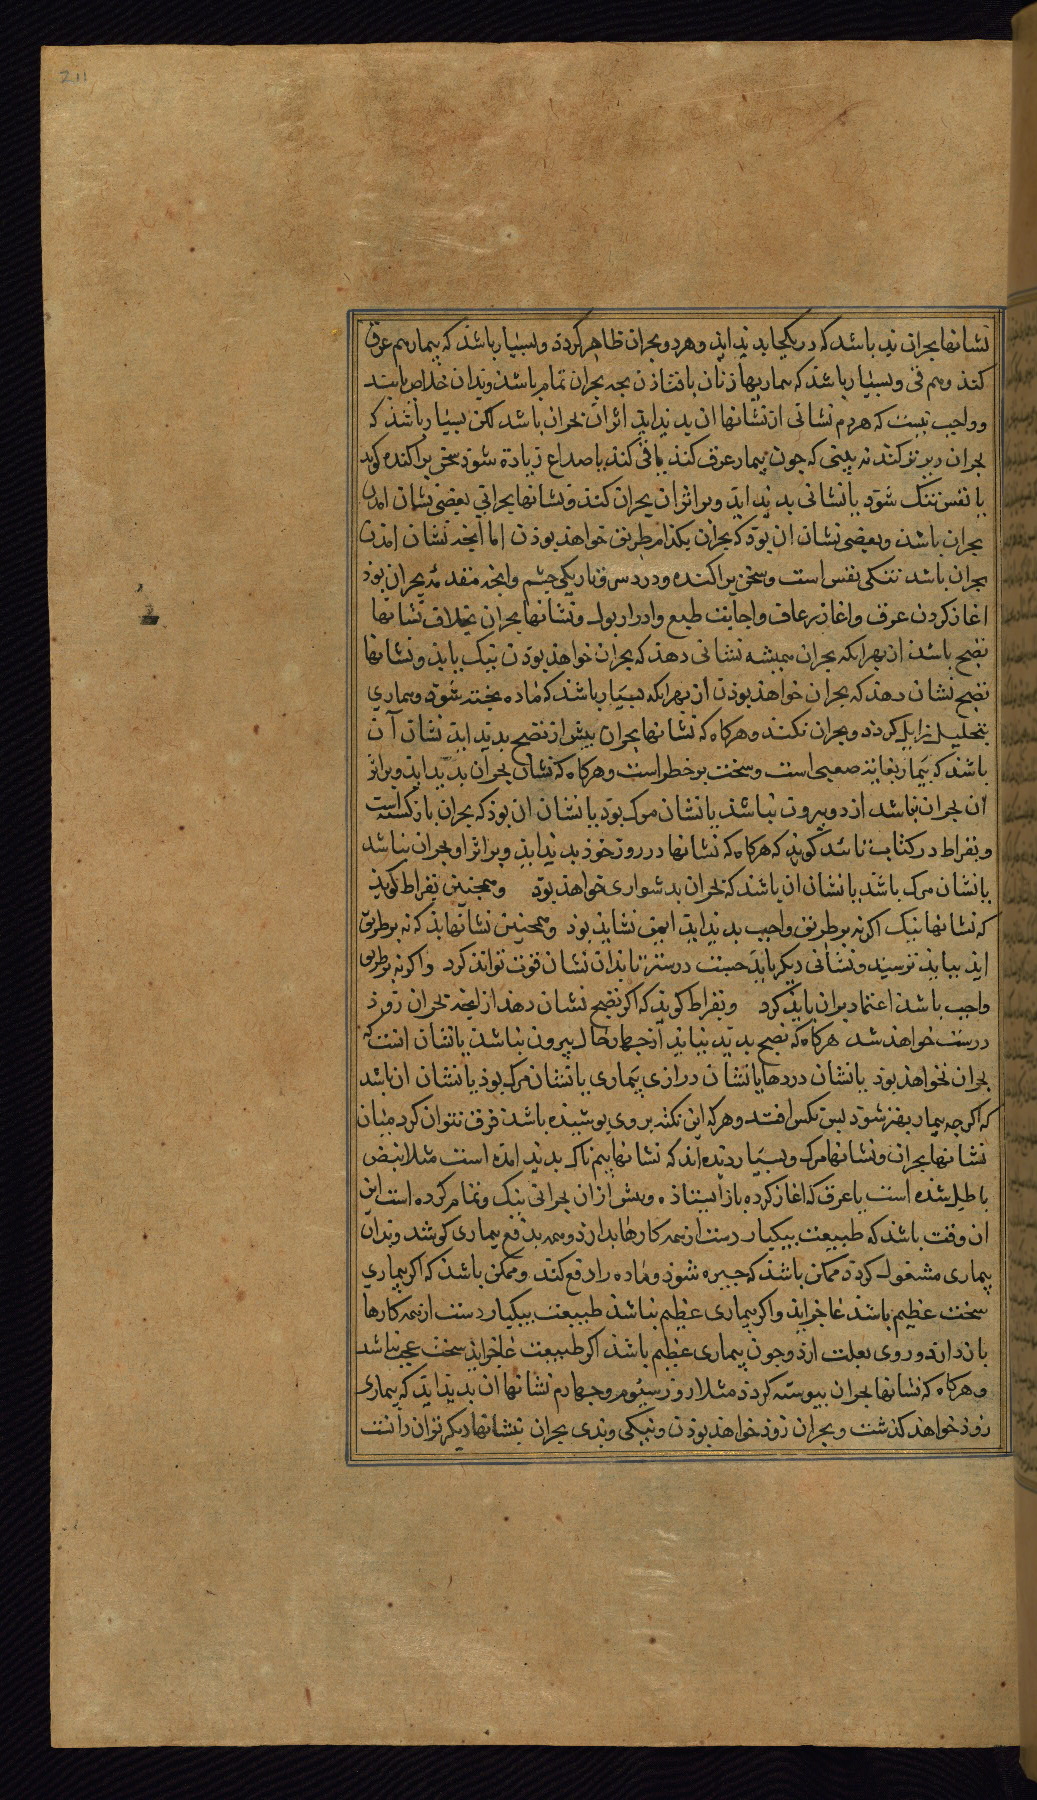 211
نشانها بحران بد باشد که در یکجا پدید اید و هر دو بحران ظاهر کردد و بسیار باشد که بیمار هم عرق
کند و هم قی و بسیار باشد که بیماریها زنان با فتاذن بجه بحران تمام باشد و بدان خلاص یابند
و واجب نیست که هر دم نشانی از نشانها ان پدید اید اثر ان بحران باشد لکن بسیار باشد که
بحران دیرتر کند نه بینی که چون بیمار عرق کند یا قی کند یا صداع زیاده شود سخن پراکنده کوید
یا نفس تنک شود یا نشانی بد پدید اید و بر اثر ان بحران کند و نشانها بحرانی بعضی نشان امدن
بحران باشد و بعضی نشان ان بود که بحران بکدام طریق خواهد بوذن اما انجه نشان امدن
بحران باشد تنکی نفس است و سخن پراکنده و درد سر و تاریکی چشم و انجه مقدمه بحران بود
اغاز کردن عرق و اغاز رعاف و اجابت طبع و ادرار بول و نشانها بحران بخلاف نشانها
نضج باشد از بهر انکه بحران همیشه نشانی دهد که بحران خواهد بودن نیک یا بد و نشانها
نضج نشان دهد که بحران خواهد بوذن از بهر انکه بسیار باشد که ماده بخته شود و بیماری
بتحلیل زایل کردد و بحران نکند و هرکاه که نشانها بحران بیش از نضج پدید اید نشان آن
باشد که بیمار بغایت صعبی است و سخت پر خطر است و هرکاه که نشان بحران پدید اید و بر اثر
ان بحران نباشد از دو بیرون نباشد یا نشان مرک بود یا نشان ان بود که بحران باز کشته است
و بقراط در کتاب کوید که هرکاه که نشانها در روز خود پدید اید و بر اثر او بحران نباشد
یا نشان مرک باشد یا نشان ان باشد که بحران بدشواری خواهد بود و همچنین بقراط کوید
که نشانها نیک اکر نه بر طریق واجب پدید اید ایمن نشاید بود و همچنین نشانها بد که نه بر طریق
اید نباید ترسید و نشانی دیکر باید جست درستر تا بدان نشان قوت تواند کرد و اکر نه بر طریق
واجب باشد اعتماد بران باید کرد و بقراط کوید که اکر نضج نشان دهد از انجه بحران زود
درست خواهد شد هرکاه که نضج پدید نیاید از چهار حال بیرون نباشد یا نشان انست که
بحران نخواهد بود یا نشان دردها یا نشان درازی بیماری یا نشان مرک بود یا نشان ان باشد
که اکرچه بیمار بهتر شود بس نکس افتد و هر که این نکته بروی پوشیده باشد فرق نتوان کرد میان
نشانها بحران و نشانها مرک و بسیار دیده اند که نشانها بیمناک پدید امده است مثلا نبض
باطل شده است یا عرق که اغاز کرده باز ایستاده و پس از ان بحرانی نیک و تمام کرده است این
ان وقت باشد که طبیعت بیکبار دست از همه کارها بدارد و همه بدفع بیماری کوشد و بدان
بیماری مشغول کردد ممکن باشد که جیره شود و ماده را دفع کند و ممکن باشد که اکر بیماری
سخت عظیم باشد عاجز اید و اکر بیماری عظیم نباشد طبیعت بیکبار دست از همه کارها
باز دارد و روی بعلت ارد و جون بیماری عظیم باشد اکر طبیعت عاجز اید سخت عجب نباشد
و هرکاه که نشانها بحران پیوسته کردد مثلا روز سیوم و چهارم نشانها ان پدید اید که بیماری
زود خواهد کذشت و بحران زود خواهد بودن و نیکی و بدی بحران بنشانها دیکر توان دانست